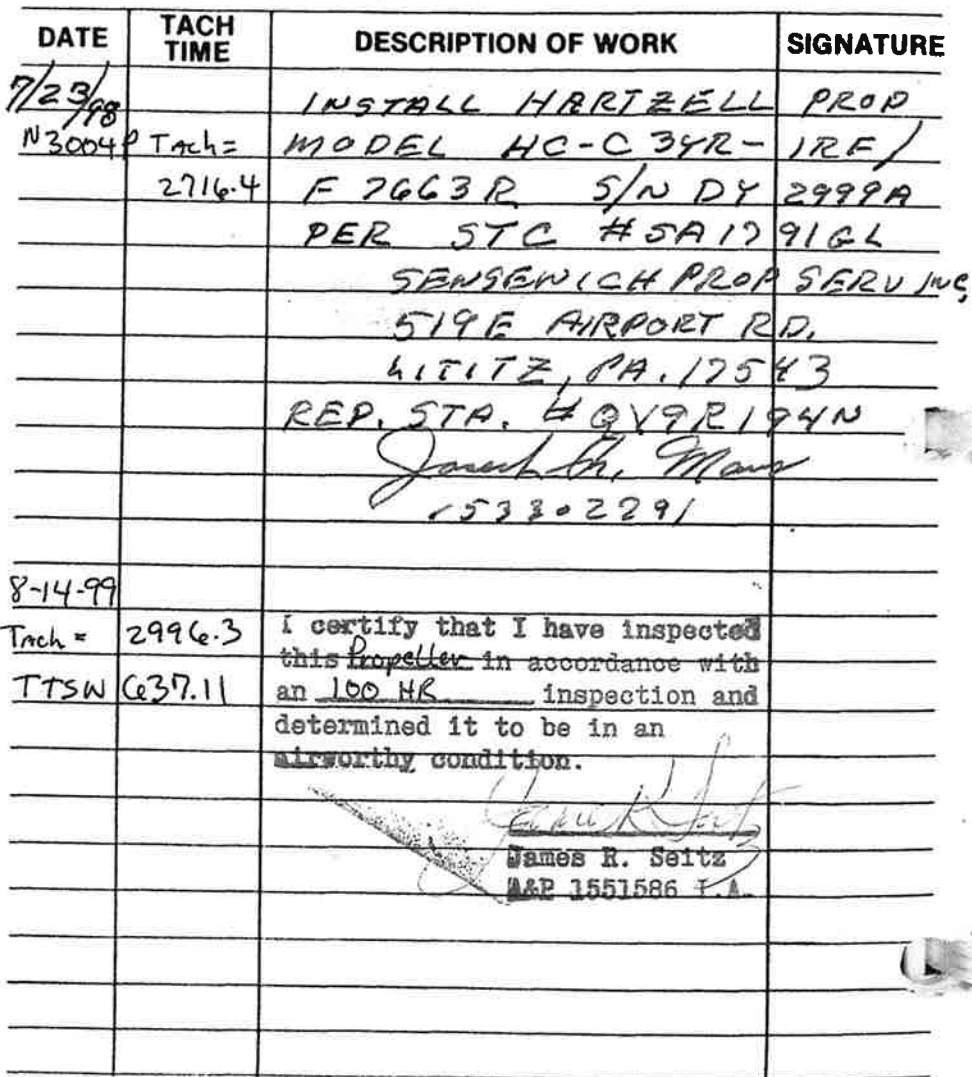 DATE TACH TIME DESCRIPTION OF WORK SIGNATURE
7/23/98 INSTALL HARTZELL PROP
N3004P Tach= MODEL HC-C3YR-1RF/
2716.4 F7663R S/N DY 2999A
PER STC #SA1791GL
SENSENICH PROP SERV INC,
519E AIRPORT RD,
LITITZ, PA. 17543
REP. STA. # QV9R194N
Joseph M.
153302291
8-14-99
Tach = 2996.3 I certify that I have inspected
this Propeller in accordance with
TTSN 637.11 an 100 HR inspection and
determined it to be in an
airworthy condition.
James R. Seitz
A&P 1551586 I.A.